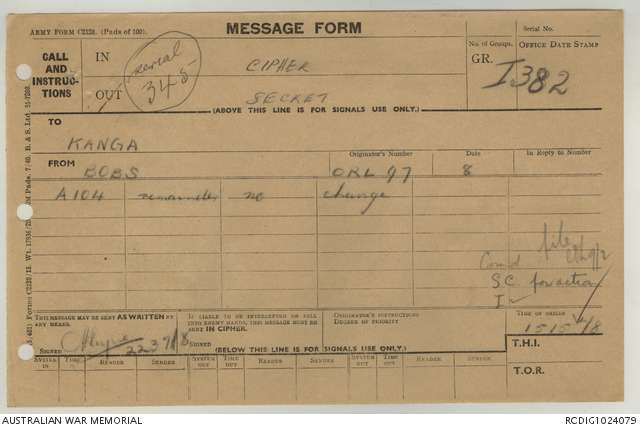 ARMY FORM C2128. (Pads of 100).
MESSAGE FORM
Serial No.
CALL AND INSTRUCTIONS
IN
OUT
serial 345
CIPHER
SECRET
No. of Groups.
GR.
OFFICE DATE STAMP
I382
(ABOVE THIS LINE IS FOR SIGNALS USE ONLY.)
TO
KANGA
FROM
BOBS
Originator's Number
ORL 97
Date
8
In Reply to Number
A104 remainder no change
file
S.C. for action
I
THIS MESSAGE MAY BE SENT AS WRITTEN BY ANY MEANS.
SIGNED
2237/8
IF LIABLE TO BE INTERCEPTED OR FALL INTO ENEMY HANDS, THIS MESSAGE MUST BE SENT IN CIPHER.
SIGNED
ORIGINATOR'S INSTRUCTIONS
DEGREE OF PRIORITY
TIME OF ORIGIN
1515/8
T.H.I.
T.O.R.
(BELOW THIS LINE IS FOR SIGNALS USE ONLY.)
SYSTEM IN
TIME IN
READER
SENDER
SYSTEM OUT
TIME OUT
READER
SENDER
SYSTEM OUT
TIME OUT
READER
SENDER
AUSTRALIAN WAR MEMORIAL
RCDIG1024079